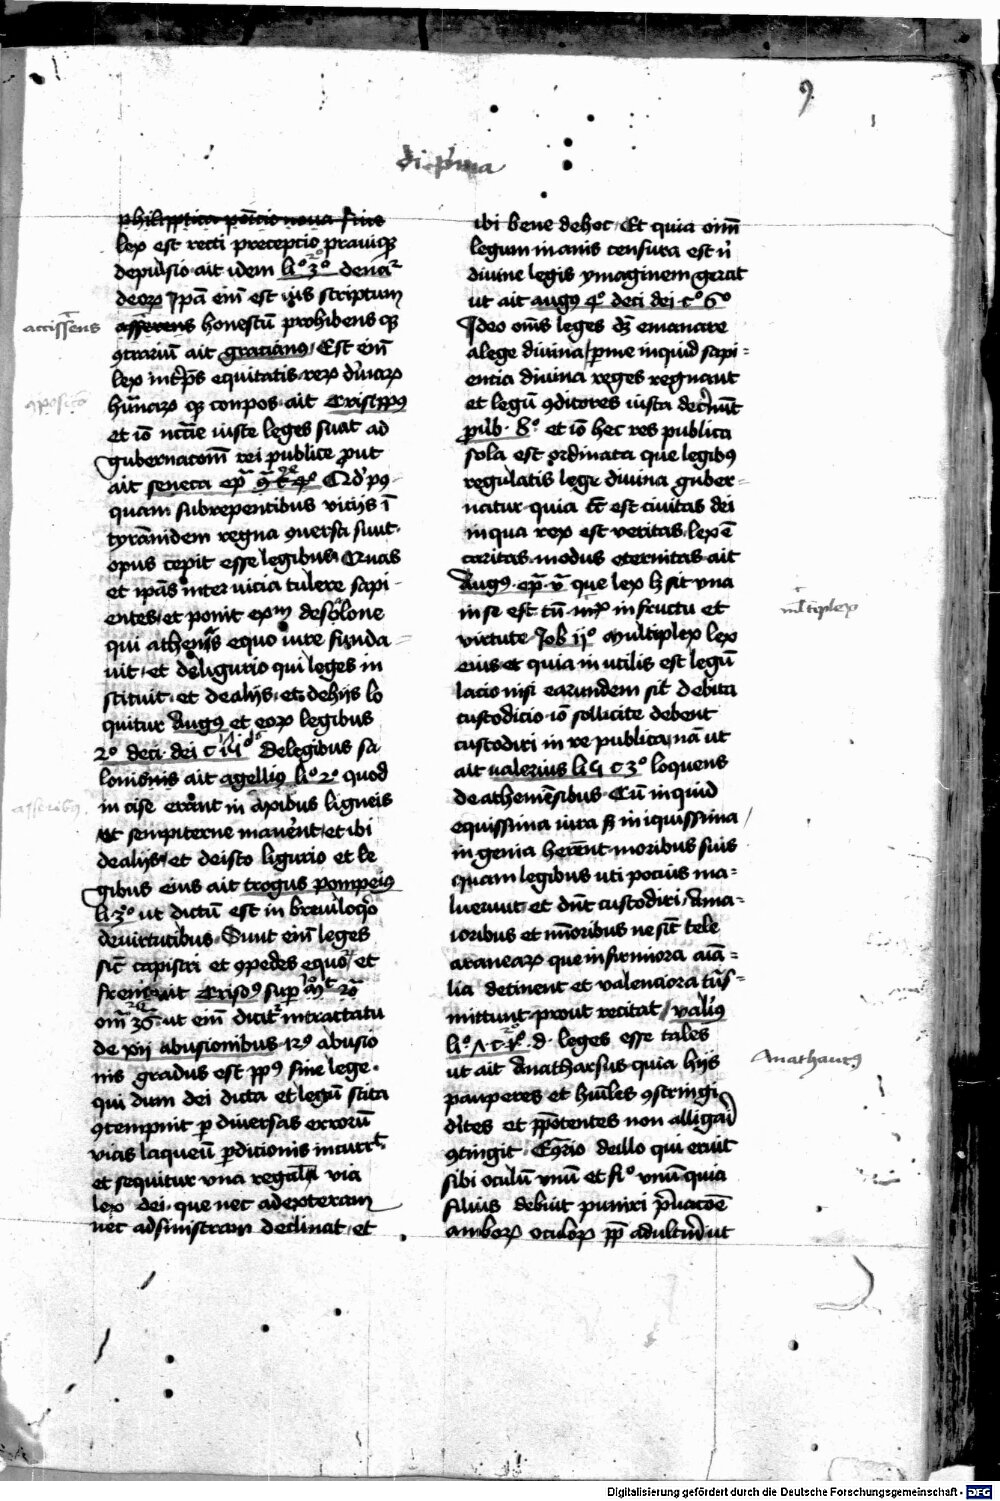 9
di p'ma
philippica petitio noua siue
lex est recti preceptio prauiq3
depulsio ait idem li° 3° de na'
deorꝝ Ipā eni est iꝰs scriptum
asserens honestū prohibens q3
ꝯtrariū ait gracianꝰ Est eni
lex int'ps equitatis rex diuinaꝝ
hūanaꝝ q3 conpos ait crisippꝰ
et iō nccīe iuste leges sunt ad
gubernacoēm rei publice prout
ait seneca
quam subrepentibus viciis ī
tyrānidem regna ꝯuersa sunt
opus cepit esse legibus Quas
et ipās inter uicia tulere sapi
entes et ponit exm de solone
qui athenis equo iure funda
uit et de ligurio qui leges in
stituit et de aliis et de hiis lo
quitur Augꝰ et eoꝝ legibus
2° de ci. dei c De legibus sa
lonis ait agellius li° 2° quod
in cise erant in axibus ligneis
et sempiterne manent et ibi
de aliis et de isto ligurio et le
gibus eius ait trogus pompeiꝰ
li. 3° ut dictū est in breuiloqō
de uirtutibus Sunt eni leges
sic̄ capistri et ꝯpedes equoꝝ et
frenū ait crisoꝰ sup
ut eni dicit' in tractatu
de xii abusionibus 12ꝰ abusio
nis gradus est ppꝰ sine lege
qui dum dei dicta et legū scita
ꝯtempnit p diuersas errorū
vias laqueū pditionis incurrt
et sequitur vna regalis via
lex dei que nec ad exteram
nec ad sinistram declinat et
accissēns
ꝯpositō
asseribꝰ
ibi bene de hoc Et quia oim
legum inanis censura est n'
diuine legis ymaginem gerat
ut ait augꝰ 4° de ci dei c° 6°
Ideo om̄s leges d3 emanare
a lege diuina / per me inquid sapi=
encia diuina reges regnant
et legū ꝯditores iusta dec'nūt
puīb. 8° et iō hec res publica
sola est ordinata que legibꝰ
regulatis lege diuina guber
natur quia tc̄ est ciuitas dei
in qua rex est veritas lex ē
caritas modus eternitas ait
Augꝰ epa v que lex h3 sit vna
in se est tn̄ in fructu et
virtute Job ii° Multiplex lex
eius et quia in utilis est legū
lacio nisi earundem sit debita
custodicio iō sollicite debent
custodiri in re publica nā ut
ait valerius li c 3° loquens
de atheniēsibus Cū inquid
equissima iura s3 iniquissima
in genia herēnt moribus suis
quam legibus uti pocius ma=
luerunt et dn̄t custodiri / Ama=
ioribus et minoribus ne sīt tele
araneaꝝ que infirmiora aiā=
lia detinent et valenciora tūs=
mittunt prout recitat / valiꝰ
d. leges esse tales
ut ait Anatharsus quia hiis
pauperes et hūīles ꝯstringi
diites et ppotentes non alligari
ꝯtingit de illo qui eruit
sibi oculū vnū et fi° vnū quia
filius debuit puniri p'uacoē
amboꝝ oculoꝝ pp adulteriū ut
ml'tiplex
Anathaurꝰ
Digitalisierung gefördert durch die Deutsche Forschungsgemeinschaft - DFG